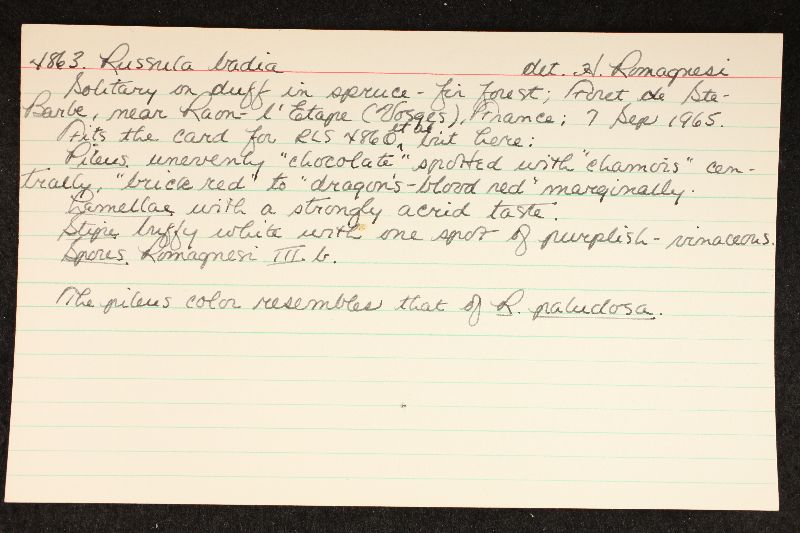 4863. Russula badia det. H. Romagnesi
Solitary on duff in spruce-fir forest; Foret de Ste-
Barbe, near Raon-l'Etape (Vosges), France; 7 Sep 1965.
Fits the card for RLS 4860, et al but here:
Pileus unevenly "chocolate" spotted with "chamois" cen-
trally, "brick red" to "dragon's-blood red" marginally.
Lamellae with a strongly acrid taste.
Stipe buffy white with one spot of purplish-vinaceous.
Spores Romagnesi III.b.
The pileus color resembles that of R. paludosa.